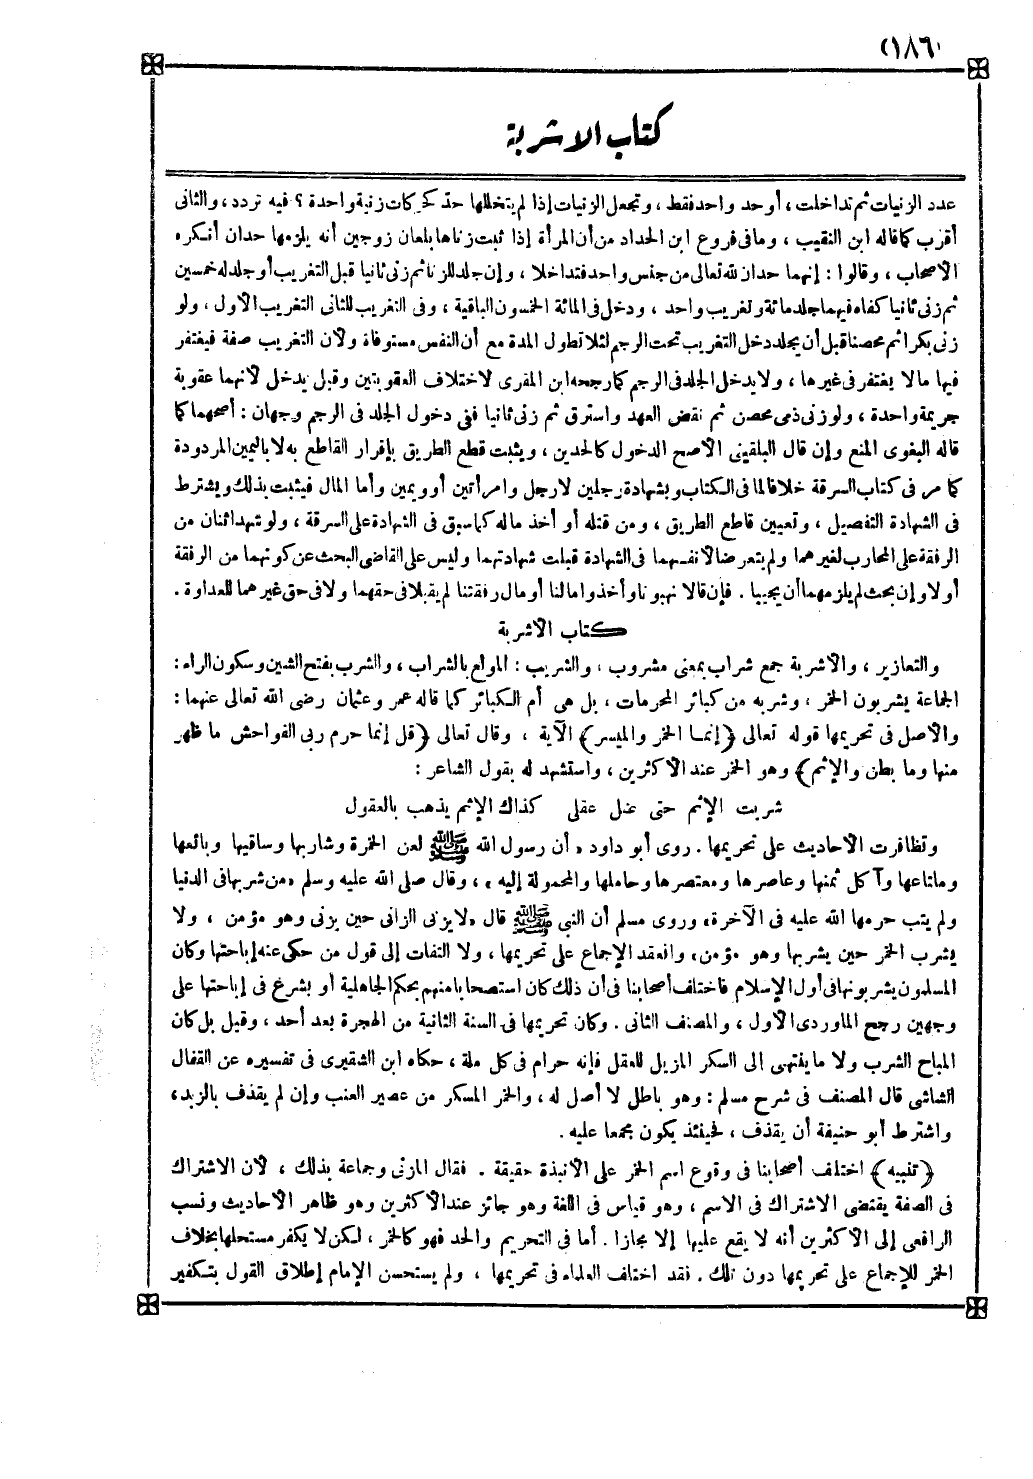 (١٨٦)
كتاب الاشربة
عدد الزنيات ثم تداخلت ، أو حد واحد فقط ، وتجعل الزنيات إذا لم يتخللها حد كحركات زنية واحدة ؟ فيه تردد ، والثانى
أقرب كما قاله ابن النقيب ، وما فى فروع ابن الحداد من أن المرأة إذا ثبت زناها بلعان زوجين أنه يلزمها حدان أنكره
الأصحاب ، وقالوا : إنهما حدان لله تعالى من جنس واحد فتداخلا ، وإن جلد للزنا ثم زنى ثانيا قبل التغريب أو جلد له خمسين
ثم زنى ثانيا كفاه فيهما جلد مائة وتغريب واحد ، ودخل فى المائة الخمسون الباقية ، وفى التغريب للثانى التغريب الأول ، ولو
زنى بكرا ثم محصنا قبل أن يجلد دخل التغريب تحت الرجم لئلا تطول المدة مع أن النفس مستوفاة ولأن التغريب صفة فيغتفر
فيها مالا يغتفر فى غيرها ، ولا يدخل الجلد فى الرجم كما رجحه ابن المقرى لاختلاف العقوبتين وقيل يدخل لأنهما عقوبة
جريمة واحدة ، ولو زنى ذمى محصن ثم نقض العهد واسترق ثم زنى ثانيا ففى دخول الجلد فى الرجم وجهان : أصحهما كما
قاله البغوى المنع وإن قال البلقينى الأصح الدخول كالحدين ، ويثبت قطع الطريق بإقرار القاطع به لا باليمين المردودة
كما مر فى كتاب السرقة خلافا لما فى الكتاب وبشهادة رجلين لا رجل وامرأتين أو ويمين وأما المال فيثبت بذلك ويشترط
فى الشهادة التفصيل ، وتعيين قاطع الطريق ، ومن قتله أو أخذ ماله كما سبق فى الشهادة على السرقة ، ولو شهد اثنان من
الرفقة على المحارب لغيرهما ولم يتعرضا لأنفسهما فى الشهادة قبلت شهادتهما وليس على القاضى البحث عن كونهما من الرفقة
أولا وإن بحث لم يلزمهما أن يجيبا . فإن قالا نهبونا وأخذوا مالنا أو مال رفقتنا لم يقبلا فى حقهما ولا فى حق غيرهما للعداوة .
كتاب الأشربة
والتعازير ، والأشربة جمع شراب بمعنى مشروب ، والشريب : المولع بالشراب ، والشرب بفتح الشين وسكون الراء :
الجماعة يشربون الخمر ، وشربه من كبائر المحرمات ، بل هى أم الكبائر كما قاله عمر وعثمان رضى الله تعالى عنهما :
والأصل فى تحريمها قوله تعالى ﴿إنما الخمر والميسر﴾ الآية ، وقال تعالى ﴿قل إنما حرم ربى الفواحش ما ظهر
منها وما بطن والإثم﴾ وهو الخمر عند الأكثرين ، واستشهد له بقول الشاعر :
شربت الإثم حتى ضل عقلى كذاك الإثم يذهب بالعقول
وتظافرت الأحاديث على تحريمها . روى أبو داود « أن رسول الله ﷺ لعن الخمرة وشاربها وساقيها وبائعها
ومبتاعها وآكل ثمنها وعاصرها ومعتصرها وحاملها والمحمولة إليه » ، وقال صلى الله عليه وسلم « من شربها فى الدنيا
ولم يتب حرمها الله عليه فى الآخرة » وروى مسلم أن النبى ﷺ قال « لايزنى الزانى حين يزنى وهو مؤمن ، ولا
يشرب الخمر حين يشربها وهو مؤمن » وانعقد الإجماع على تحريمها ، ولا التفات إلى قول من حكى عنه إباحتها وكان
المسلمون يشربونها فى أول الإسلام فاختلف أصحابنا فى أن ذلك كان استصحابا منهم بحكم الجاهلية أو بشرع فى إباحتها على
وجهين رجح الماوردى الأول ، والمصنف الثانى . وكان تحريمها فى السنة الثانية من الهجرة بعد أحد ، وقيل بل كان
المباح الشرب ولا ما ينتهى الى السكر المزيل للعقل فإنه حرام فى كل ملة ، حكاه ابن القشيرى فى تفسيره عن القفال
الشاشى قال المصنف فى شرح مسلم : وهو باطل لا أصل له ، والخمر المسكر من عصير العنب وإن لم يقذف بالزبد ،
واشترط أبو حنيفة أن يقذف ، فحينئذ يكون مجمعا عليه .
﴿تنبيه﴾ اختلف أصحابنا فى وقوع اسم الخمر على الأنبذة حقيقة . فقال المزنى وجماعة بذلك ، لأن الاشتراك
فى الصفة يقتضى الاشتراك فى الاسم ، وهو قياس فى اللغة وهو جائز عند الأكثرين وهو ظاهر الأحاديث ونسب
الرافعى إلى الأكثرين أنه لا يقع عليها إلا مجازا . أما فى التحريم والحد فهو كالخمر ، لكن لا يكفر مستحلها بخلاف
الخمر للإجماع على تحريمها دون تلك . فقد اختلف العلماء فى تحريمها ، ولم يستحسن الإمام إطلاق القول بتكفير